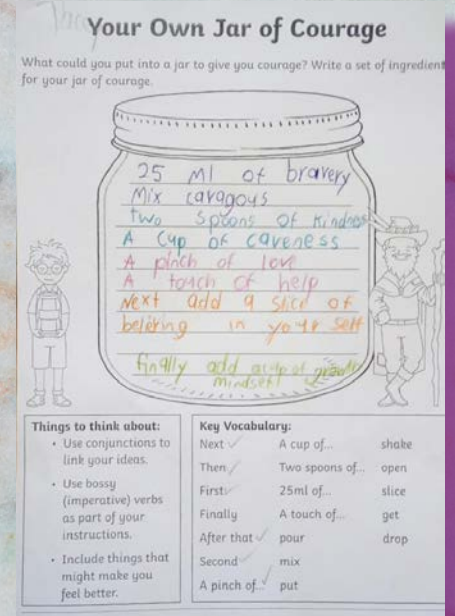 Your Own Jar of Courage
What could you put into a jar to give you courage? Write a set of ingredient
for your jar of courage.
25 ml of bravery
Mix caragous
two spoons of Kindness
A Cup of careness
A pinch of love
A touch of help
Next add a slice of
belering in your self
finally add a cup of growth
mindset!
Things to think about:
• Use conjunctions to
link your ideas.
• Use bossy
(imperative) verbs
as part of your
instructions.
• Include things that
might make you
feel better.
Key Vocabulary:
Next A cup of... shake
Then Two spoons of... open
First 25ml of... slice
Finally A touch of... get
After that pour drop
Second mix
A pinch of... put